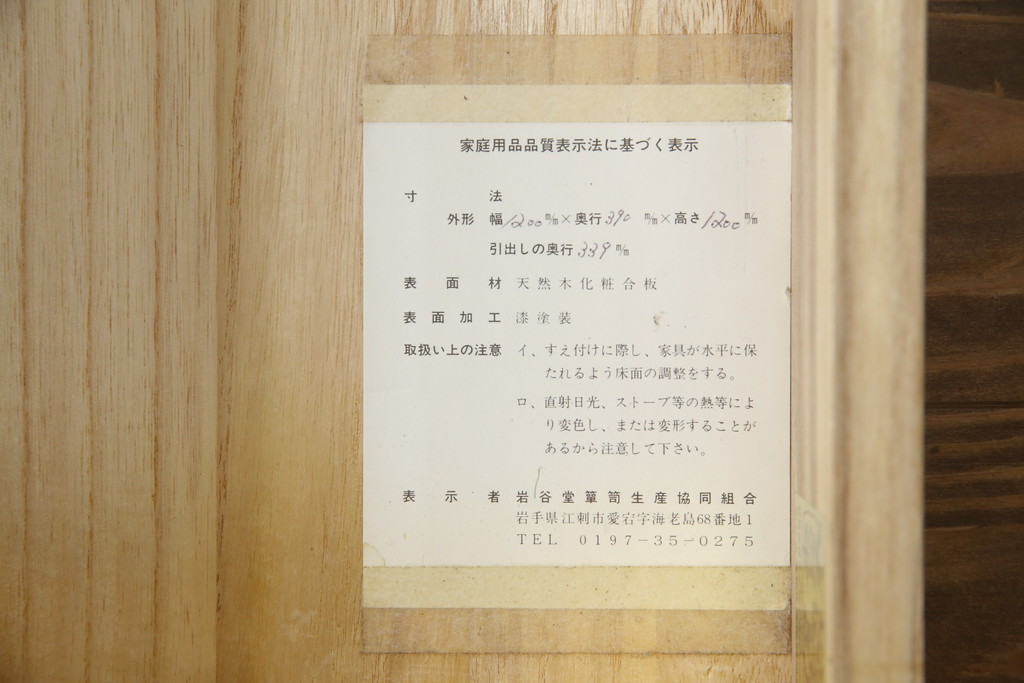 家庭用品品質表示法に基づく表示
寸法
外形 幅1200m/m×奥行390m/m×高さ1200m/m
引出しの奥行339m/m
表面材 天然木化粧合板
表面加工 漆塗装
取扱い上の注意 イ、すえ付けに際し、家具が水平に保
たれるよう床面の調整をする。
ロ、直射日光、ストーブ等の熱等によ
り変色し、または変形することが
あるから注意して下さい。
表示者 岩谷堂簞笥生産協同組合
岩手県江刺市愛宕字海老島68番地1
TEL 0197-35-0275